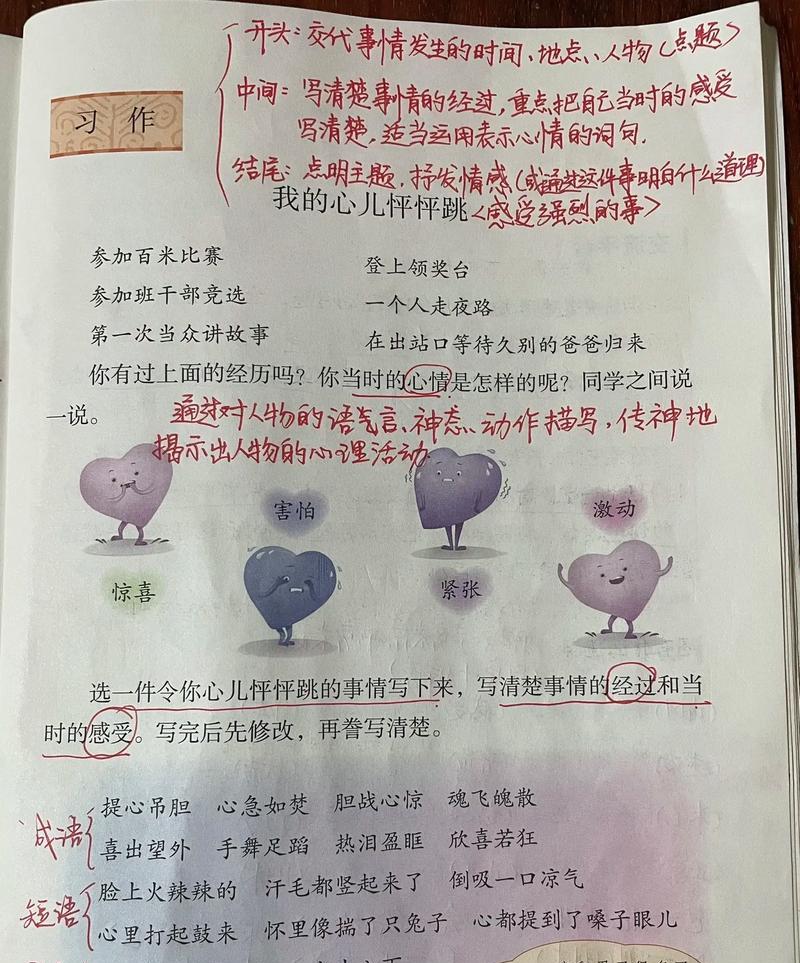 开头：交代事情发生的时间、地点、人物（点题）
习 作
中间：写清楚事情的经过，重点把自己当时的感受
写清楚，适当运用表示心情的词句．
结尾：点明主题，抒发情感（或通过这件事明白什么道理）
我的心儿怦怦跳<感受强烈的事>
参加百米比赛 登上领奖台
参加班干部竞选 一个人走夜路
第一次当众讲故事 在出站口等待久别的爸爸归来
你有过上面的经历吗？你当时的心情是怎样的呢？同学之间说
一说。
通过对人物的语言、神态、动作描写，传神地
揭示出人物的心理活动
害怕 激动
惊喜 紧张
选一件令你心儿怦怦跳的事情写下来，写清楚事情的经过和当
时的感受。写完后先修改，再誊写清楚。
成语
提心吊胆 心急如焚 胆战心惊 魂飞魄散
喜出望外 手舞足蹈 热泪盈眶 欣喜若狂
短语
脸上火辣辣的 汗毛都竖起来了 倒吸一口凉气
心里打起鼓来 怀里像揣了只兔子 心都提到了嗓子眼儿